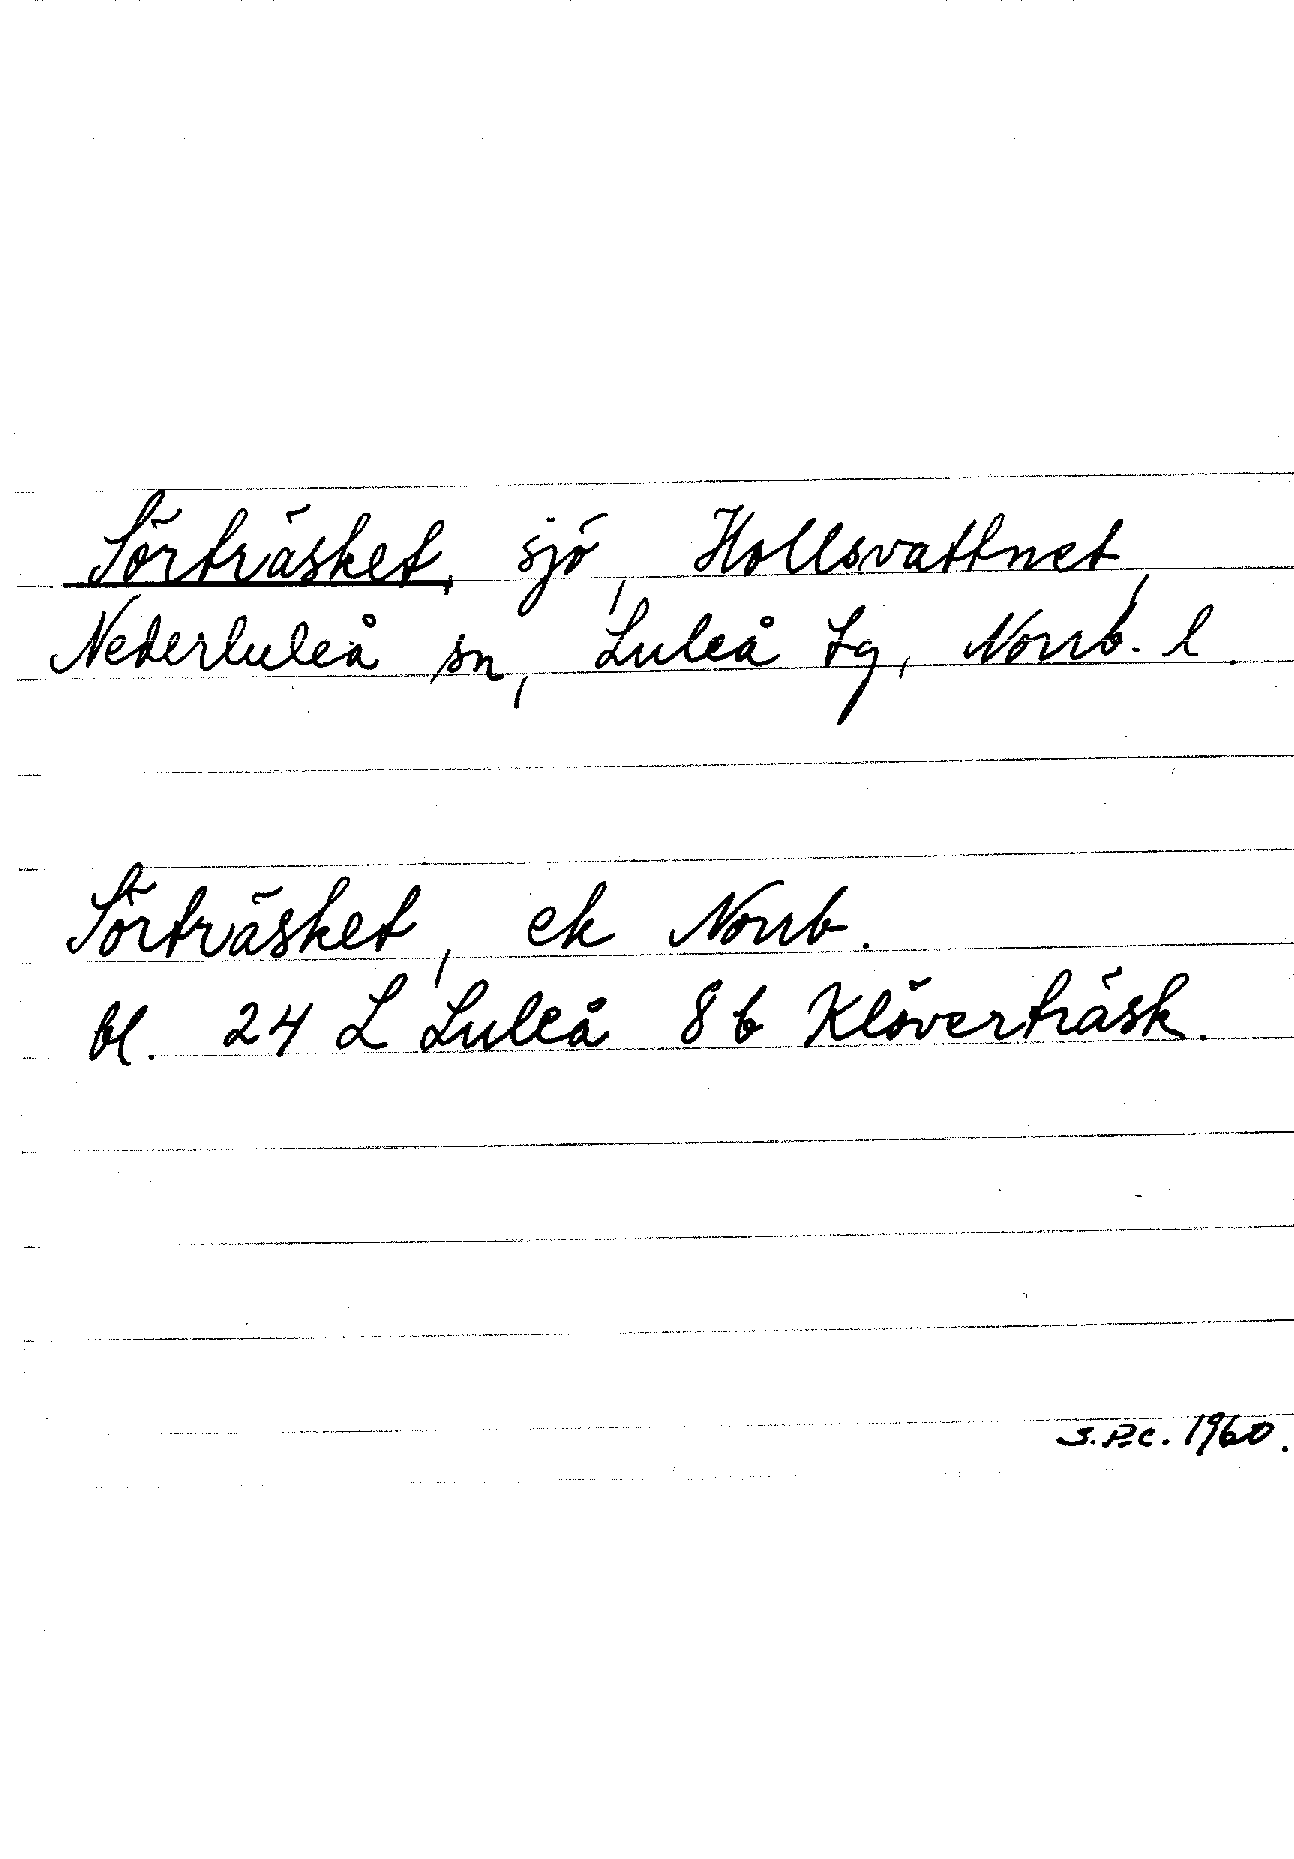 Sörträsket, sjö, Hollsvattnet,
Nederluleå sn, Luleå tg, Norrb. l.
Sörträsket, ek Norrb.
bl. 24 L Luleå 8 b Klöverträsk.
S.P.C. 1960.